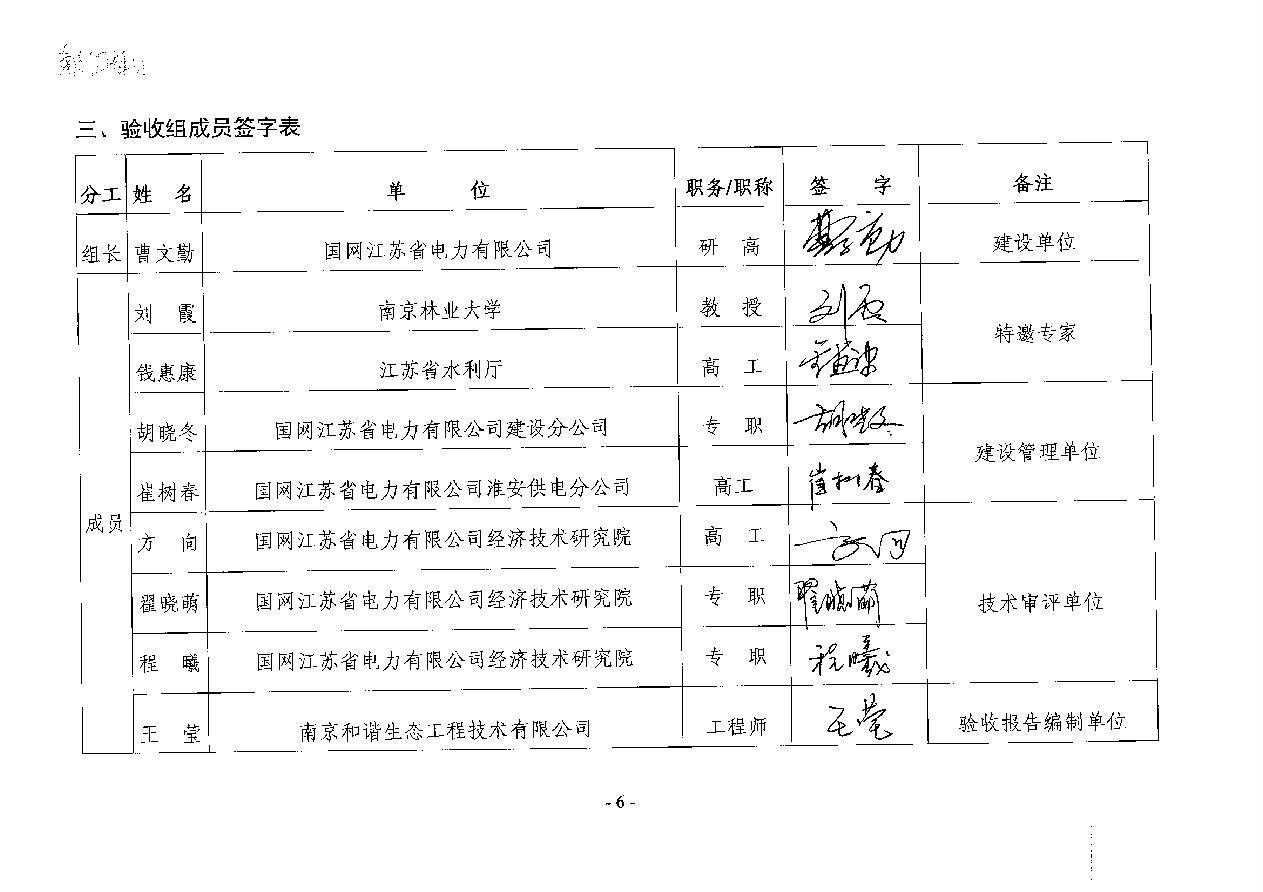 三、验收组成员签字表
分工 姓 名 单 位 职务/职称 签 字 备注
组长 曹文勤 国网江苏省电力有限公司 研 高 建设单位
成员
刘 霞 南京林业大学 教 授 刘霞 特邀专家
钱惠康 江苏省水利厅 高 工
胡晓冬 国网江苏省电力有限公司建设分公司 专 职 胡晓冬 建设管理单位
崔树春 国网江苏省电力有限公司淮安供电分公司 高工 崔树春
方 向 国网江苏省电力有限公司经济技术研究院 高 工 方向 技术审评单位
翟晓萌 国网江苏省电力有限公司经济技术研究院 专 职 翟晓萌
程 曦 国网江苏省电力有限公司经济技术研究院 专 职 程曦
王 莹 南京和谐生态工程技术有限公司 工程师 王莹 验收报告编制单位
- 6 -